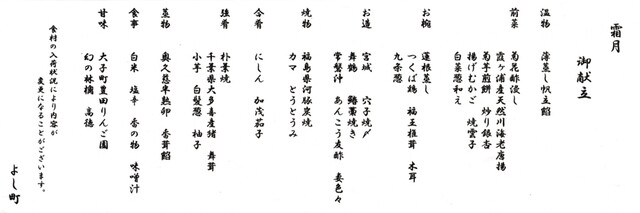 霜月
御献立
温物 薄蒸し帆立餡
前菜 菊花酢浸し
霞ヶ浦産天然川海老唐揚
菊芋煎餅 炒り銀杏
揚げむかご 焼雲子
白菜葱和え
お椀 蓮根蒸し
つくば鶏 福王椎茸 木耳
九条葱
お造 宮城 穴子焼〆
舞鶴 鰆藁焼き
常磐沖 あんこう友酢 妻色々
焼物 福島県河豚炭焼
カマ とうとうみ
合肴 にしん 加茂茄子
強肴 朴葉焼
千葉県大多喜産猪 舞茸
小芋 白髪葱 柚子
蒸物 奥久慈卵熱卵 香茸餡
食事 白米 塩辛 香の物 味噌汁
甘味 大子町豊田りんご園
幻の林檎 高徳
食材の入荷状況により内容が
変更になることがございます。
よし町